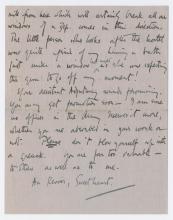 note from here which will certainly break all our
windows if a gap comes in this direction.
The little person who looks after the hostel
was quite afraid of my having a bath
just under a window as she was expecting
the guns to go off any moment!
Your Assistant Adjutancy sounds promising.
You may get promotion soon – I am sure
no officer in the Army deserves it more,
whether you are advanced in your work or
not. Please don't blow yourself up with
a grenade. You are far too valuable –
to them as well as to me.
All kisses, Sweetheart.